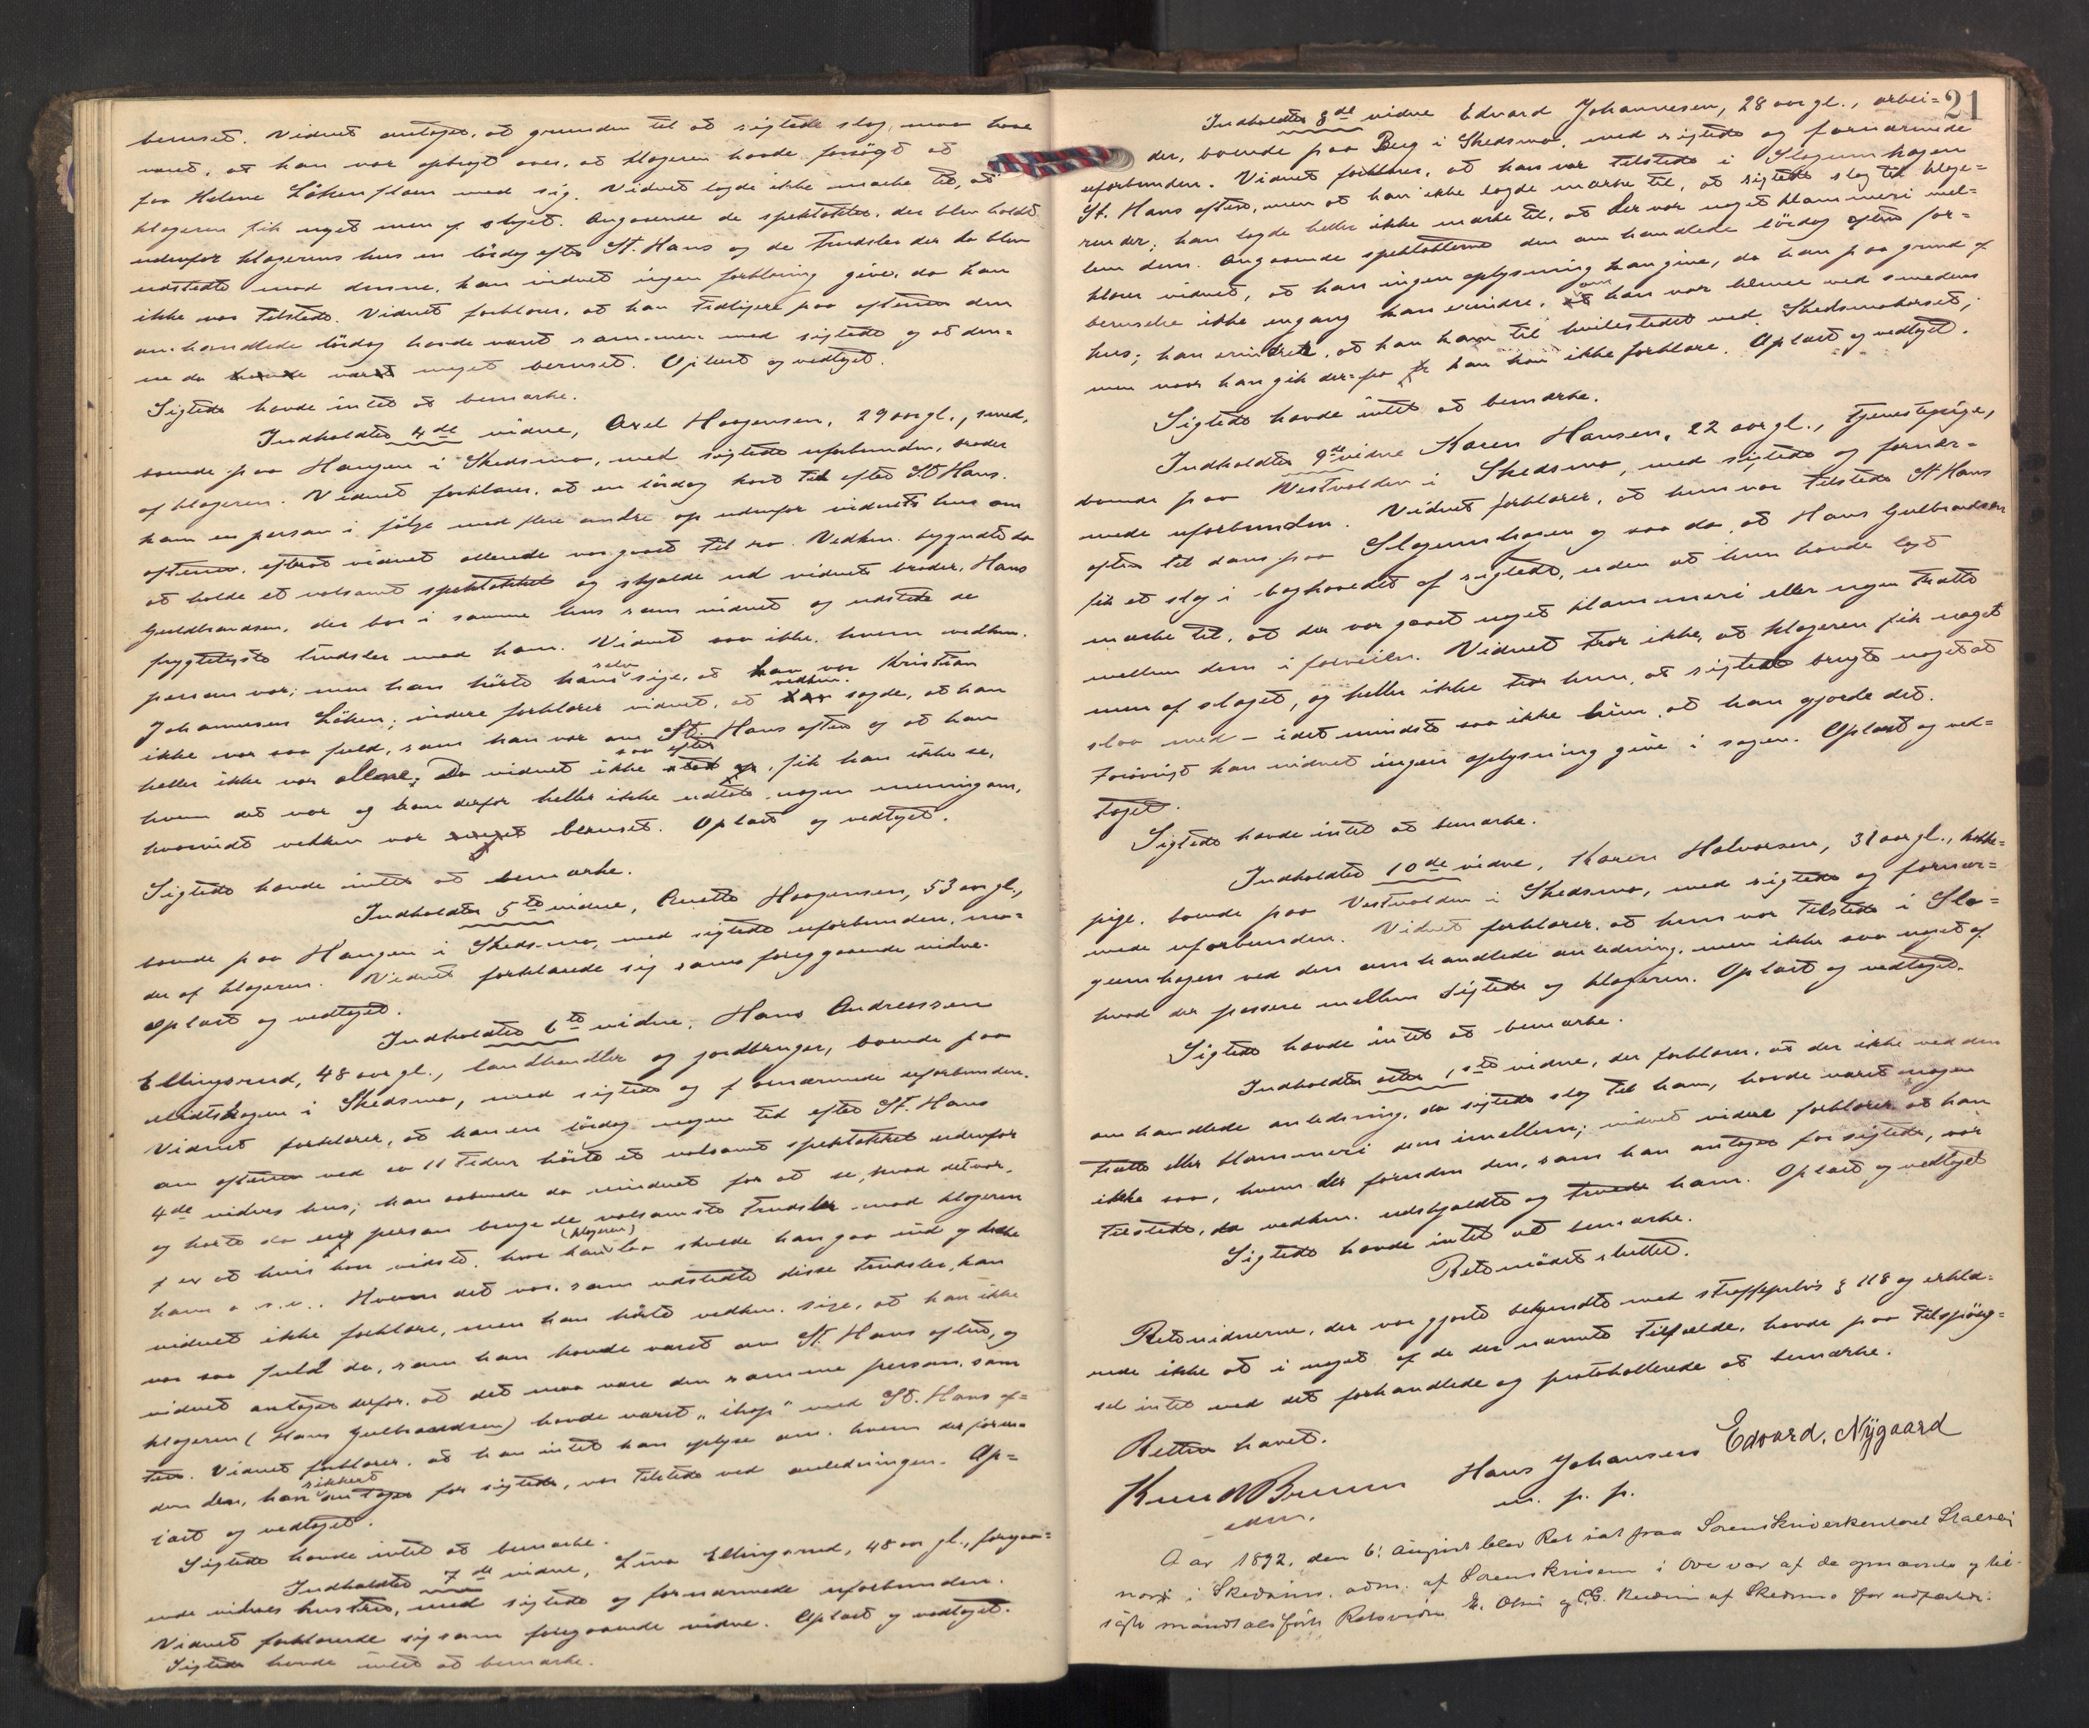 beruset. Vidnet antager, at grunden til at sigtede slog, maa have
været, at han var opbragt over, at klageren havde forsøgt at
faa Helene Løkenflaen med sig. Vidnet lagde ikke mærke til, at
klageren fik noget men af slaget. Angaaende de spektakler, der blev holdt
udenfor klagerens hus en lördag efter St. Hans og de trudsler der da blev
udstedt mod denne, kan vidnet ingen forklaring give, da han
ikke var tilstede. Vidnet forklarer, at han tidligere paa aftenen den
omhandlede lördag havde været sammen med sigtede og at den-
ne da havde været meget beruset. Oplæst og vedtaget.
Sigtede havde intet at bemærke.
Indkaldtes 4de vidne, Axel Haagensen, 29 aar gl., smed,
boende paa Haugen i Skedsmo, med sigtede uforbunden, broder
af klageren. Vidnet forklarer, at en lördag kort tid efter St Hans.
kom en person i følge med flere andre op udenfor vidnets hus om
aftenen, efterat vidnet allerede var gaaet til ro. Vedkm. begyndte da
at holde et voldsomt spektakkel og skjælde ud vidnets broder, Hans
Guldbrandsen, der bor i samme hus som vidnet og udstede de
frygteligste trudsler mod ham. Vidnet saa ikke, hvem vedkm.
person var; men han hörte ham selv sige, at han var Kristian
Johannesen Löken; videre forklarer vidnet, at vedkm. sagde, at han
ikke var saa fuld, som han var om St. Hans aften og at han
heller ikke var allene. Da vidnet ikke saa efter, fik han ikke se,
hvem det var og kan derfor heller ikke udtale nogen mening om,
hvorvidt vedkm var meget beruset. Oplæst og vedtaget.
Sigtede havde intet at bemærke.
Indkaldtes 5te vidne, Anette Haagensen, 53 aar gl.,
boende paa Haugen i Skedsmo, med sigtede uforbunden, mo-
der af klageren. Vidnet forklarede sig som foregaaende vidne.
Oplæst og vedtaget.
Indkaldtes 6te vidne, Hans Andreassen
Ellingsrud, 48 aar gl., landhandler og jordbruger, boende paa
Midtskogen i Skedsmo, med sigtede og fornærmede uforbunden.
Vidnet forklarer, at han en lördag nogen tid efter St. Hans
om aftenen ved ca 11 tiden hörte et voldsomt spektakkel udenfor
4de vidnes hus; han aabnede da vinduet for at se, hvad det var,
og hörte da en person bruge de voldsomste trudsler mod klageren
f ex at hvis han vidste, hvor han (klageren) laa skulde han gaa ind og drække
ham o. s. v.. Hvem det var, som udstedte disse trudsler, kan
vidnet ikke forklare, men han hörte vedkm. sige, at han ikke
var saa fuld da, som han havde været om St. Hans aften, og
vidnet antager derfor, at det maa være den samme person, som
klageren (Hans Gulbrandsen) havde været "ihop" med St. Hans af-
ten. Vidnet forklarer, at han intet kan oplyse om, hvem der foru-
den den, han sikkert antager for sigtede, var tilstede ved anledningen. Op-
læst og vedtaget.
Sigtede havde intet at bemærke.
Indkaldtes 7de vidne, Lina Ellingsrud, 48 aar gl., foregaa-
ende vidnes hustru, med sigtede og fornærmede uforbunden.
Vidnet forklarede sig som foregaaende vidne. Oplæst og vedtaget.
Sigtede havde intet at bemærke.
21
Indkaldtes 8de vidne Edvard Johannesen, 28 aar gl., arbei-
der, boende paa Berg i Skedsmo, med sigtede og fornærmede
uforbunden. Vidnet forklarer, at han var tilstede i Slogumhagen
St. Hans aften, men at han ikke lagde mærke til, at sigtede slog til klage-
ren der; han lagde heller ikke mærke til, at der var noget klammeri mel-
lem dem. Angaaende spektaklerne den omhandlede lördag aften for-
klarer vidnet, at han ingen oplysning kan give, da han paa grund af
beruselse ikke engang kan erindre, om han var bleven ved smedens
hus; han erindrer, at han kom til hvilestedet ved Skedsmokorset,
men naar han gik der-fra kan han ikke forklare. Oplæst og vedtaget.
Sigtede havde intet at bemærke.
Indkaldtes 9de vidne Karen Hansen, 22 aar gl., tjenestepige,
boende paa Vestvolden i Skedsmo, med sigtede og fornær-
mede uforbunden. Vidnet forklarer, at hun var tilstede St Hans
aften til dans paa Slogumhagen og saa da, at Hans Gulbrandsen
fik et slag i baghovedet af sigtede, uden at hun havde lagt
mærke til, at der var gaaet noget klammeri eller nogen trætte
mellem dem i forveien. Vidnet tror ikke, at klageren fik noget
men af slaget, og heller ikke tror hun, at sigtede brugte noget at
slaa med – idetmindste saa ikke hun, at han gjorde det.
Forøvrigt kan vidnet ingen oplysning give i sagen. Oplæst og ved-
taget.
Sigtede havde intet at bemærke.
Indkaldtes 10de vidne, Karen Halvorsen, 31 aar gl., kokke-
pige, boende paa Vestvolden i Skedsmo, med sigtede og fornær-
mede uforbunden. Vidnet forklarer, at hun var tilstede i Slo-
gumhagen ved den omhandlede anledning, men ikke saa noget af
hvad der passere mellem sigtede og klageren. Oplæst og vedtaget.
Sigtede havde intet at bemærke.
Indkaldtes atter 1ste vidne, der forklarer, at der ikke ved den
omhandlede anledning, da sigtede slog til ham, havde været nogen
trætte eller klammeri dem imellem; vidnet videre forklarer at han
ikke saa, hvem der foruden den, som han antager for sigtede, var
tilstede, da vedkm. udskjældte og truede ham. Oplæst og vedtaget
Sigtede havde intet at bemærke.
Retsmödet sluttet.
Retsvidnerne, der var gjort bekjendte med straffeprlvs § 118 og erklæ-
rede ikke at i noget af de der nævnte tilfælde, havde paa tilspörg-
sel intet ved det forhandlede og protokollerede at bemærke.
Retten hævet.
Knud Bruun Hans Johansen Edvard. Nÿgaard
edm. m. p. p.
Aar 1892, den 6. August blev Ret sat paa Sorenskriverkontoret
i Skedsmo, adm. af Sorenskriveren i Overvær af de opnævnte og til-
sagte mandtalsførte Retsvidner E. Olsen og af Skedsmo for